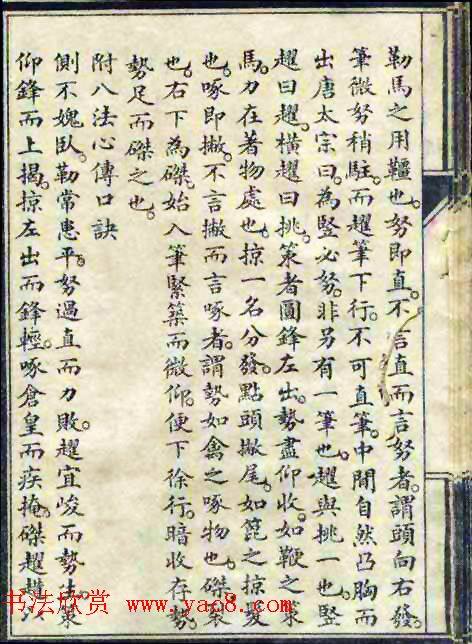 勒馬之用韁也。努即直。不言直而言努者。謂頭向右發。
筆微努稍駐。而趯筆下行。不可直筆。中間自然凸胸而
出唐太宗曰。為竪必努。非另有一筆也。趯與挑一也。竪
趯曰趯。橫趯曰挑。策者圓鋒左出。勢盡仰收。如鞭之策
馬。力在著物處也。掠一名分發。點頭撇尾。如箆之掠髮
也。啄即撇。不言撇而言啄者。謂勢如禽之啄物也。磔
也。右下為磔。始入筆緊築而微仰。便下徐行。暗收存勢。
勢足而磔之也。
附八法心傳口訣
側不媿臥。勒常患平。努過直而力敗。趯宜峻而勢
仰鋒而上揭。掠左出而鋒輕。啄倉皇而疾掩。磔趯趙以
书法欣赏 www.yac8.com